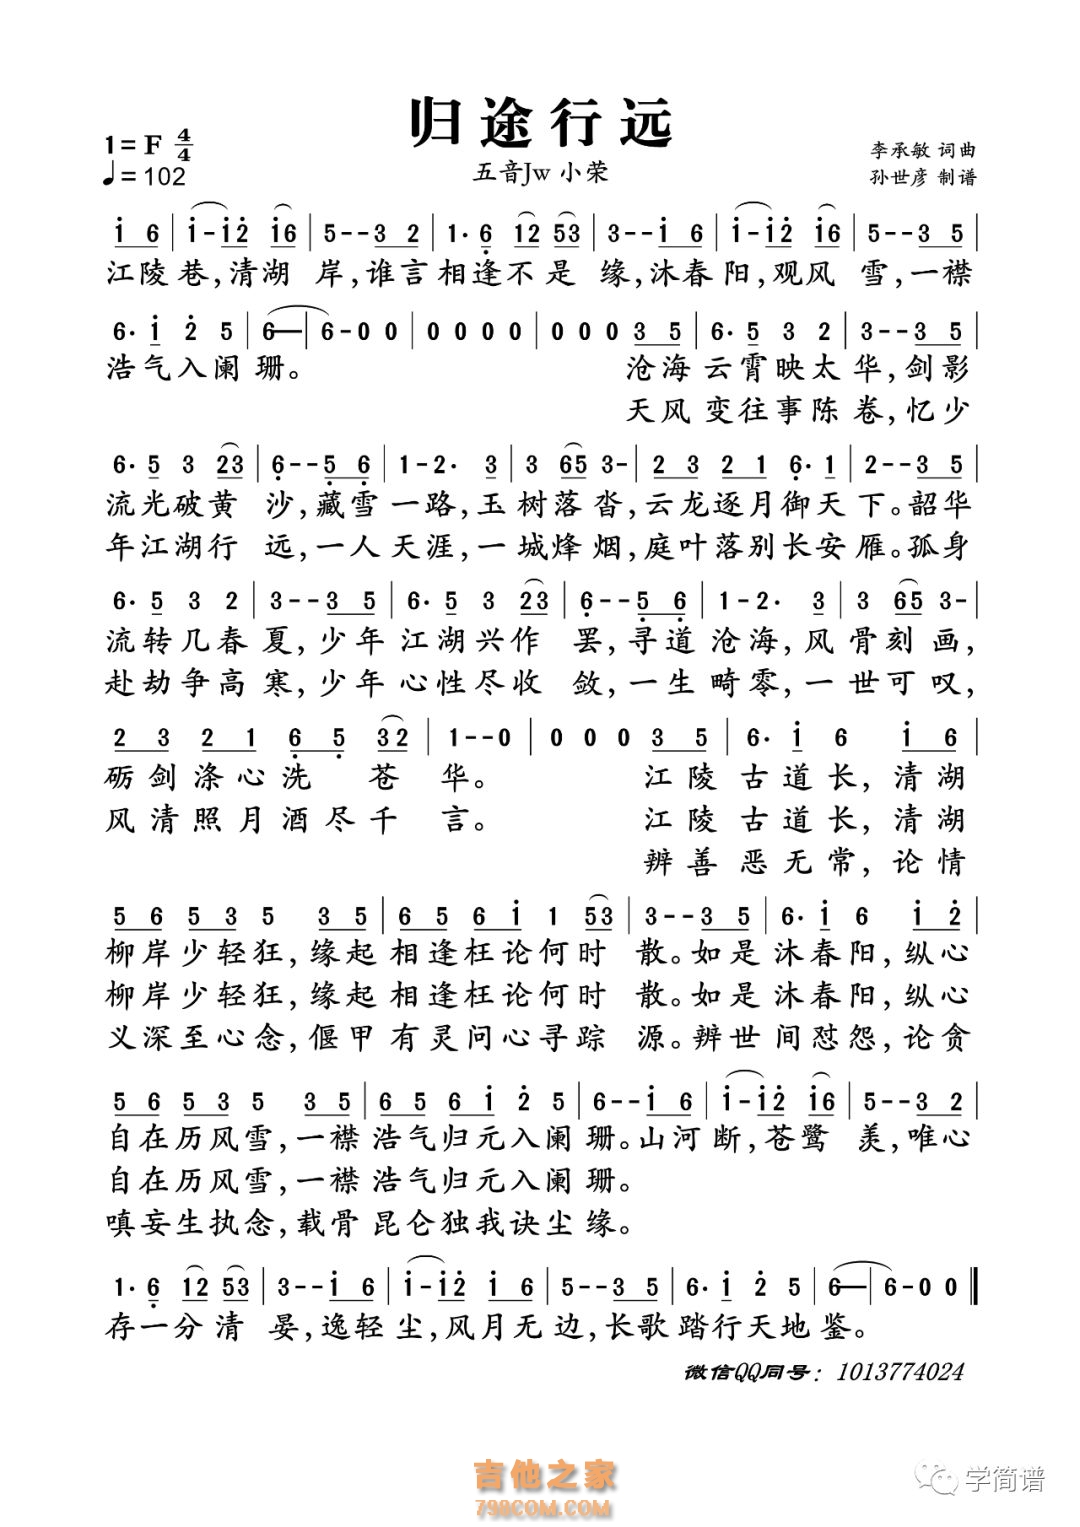 归途行远
1=F 4/4
♩=102
五音Jw 小荣
李承敏 词曲
孙世彦 制谱
i 6 | i-i2 i6 | 5--3 2 | 1· 6 12 53 | 3--i 6 | i-i2 i6 | 5--3 5 |
江陵巷,清湖 岸,谁言相逢不是 缘,沐春阳,观风 雪,一襟
6· i 2 5 | 6— | 6-0 0 | 0 0 0 0 | 0 0 0 3 5 | 6· 5 3 2 | 3--3 5 |
浩气入阑珊。 沧海云霄映太华,剑影
天风变往事陈卷,忆少
6· 5 3 23 | 6--5 6 | 1-2· 3 | 3 65 3- | 2 3 2 1 6· 1 | 2--3 5 |
流光破黄 沙,藏雪一路,玉树落沓,云龙逐月御天下。韶华
年江湖行 远,一人天涯,一城烽烟,庭叶落别长安雁。孤身
6· 5 3 2 | 3--3 5 | 6· 5 3 23 | 6--5 6 | 1-2· 3 | 3 65 3- |
流转几春夏,少年江湖兴作 罢,寻道沧海,风骨刻画,
赴劫争高寒,少年心性尽收 敛,一生畸零,一世可叹,
2 3 2 1 6 5 32 | 1--0 | 0 0 0 3 5 | 6· i 6 i 6 |
砺剑涤心洗 苍 华。 江陵古道长,清湖
风清照月酒尽千 言。 江陵古道长,清湖
辨善恶无常,论情
5 6 5 3 5 3 5 | 6 5 6 i 1 53 | 3--3 5 | 6· i 6 i 2 |
柳岸少轻狂,缘起相逢枉论何时 散。如是沐春阳,纵心
柳岸少轻狂,缘起相逢枉论何时 散。如是沐春阳,纵心
义深至心念,偃甲有灵问心寻踪 源。辨世间怼怨,论贪
5 6 5 3 5 3 5 | 6 5 6 i 2 5 | 6--i 6 | i-i2 i6 | 5--3 2 |
自在历风雪,一襟浩气归元入阑珊。山河断,苍鹭 羡,唯心
自在历风雪,一襟浩气归元入阑珊。
嗔妄生执念,载骨昆仑独我诀尘缘。
1· 6 12 53 | 3--i 6 | i-i2 i 6 | 5--3 5 | 6· i 2 5 | 6— | 6-0 0 ‖
存一分清 晏,逸轻尘,风月无边,长歌踏行天地鉴。
微信QQ同号：1013774024
吉他之家
798COM.COM
学简谱